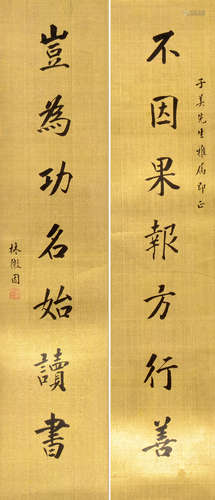 子美先生雅属即正
不因果報方行善
豈為功名始讀書
林徽因